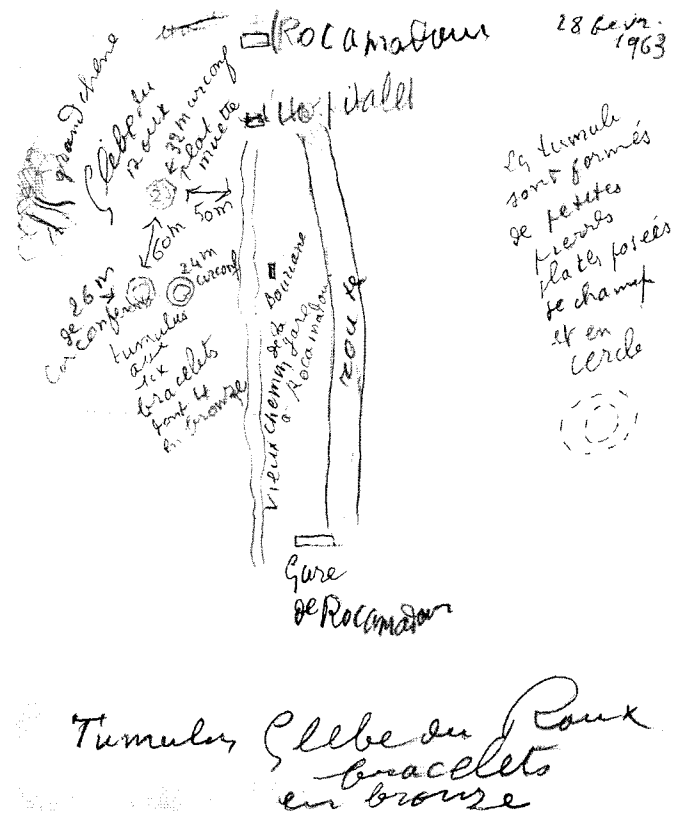 28 Fevr.
1963
Rocamadour
Hospitalet
grand chêne
Glèbe du
roux
32m circonf
plat
muette
50m
60m
24m
circonf
de 26 m
Circonférence
tumulus
avec
six
bracelets
dont 4
en bronze
vieux chemin de la
gare
à Rocamadour
route
Les tumuli
sont formés
de petites
pierres
plates posées
de champ
et en
cercle
Gare
de Rocamadour
Tumulus Glèbe du Roux
bracelets
en bronze